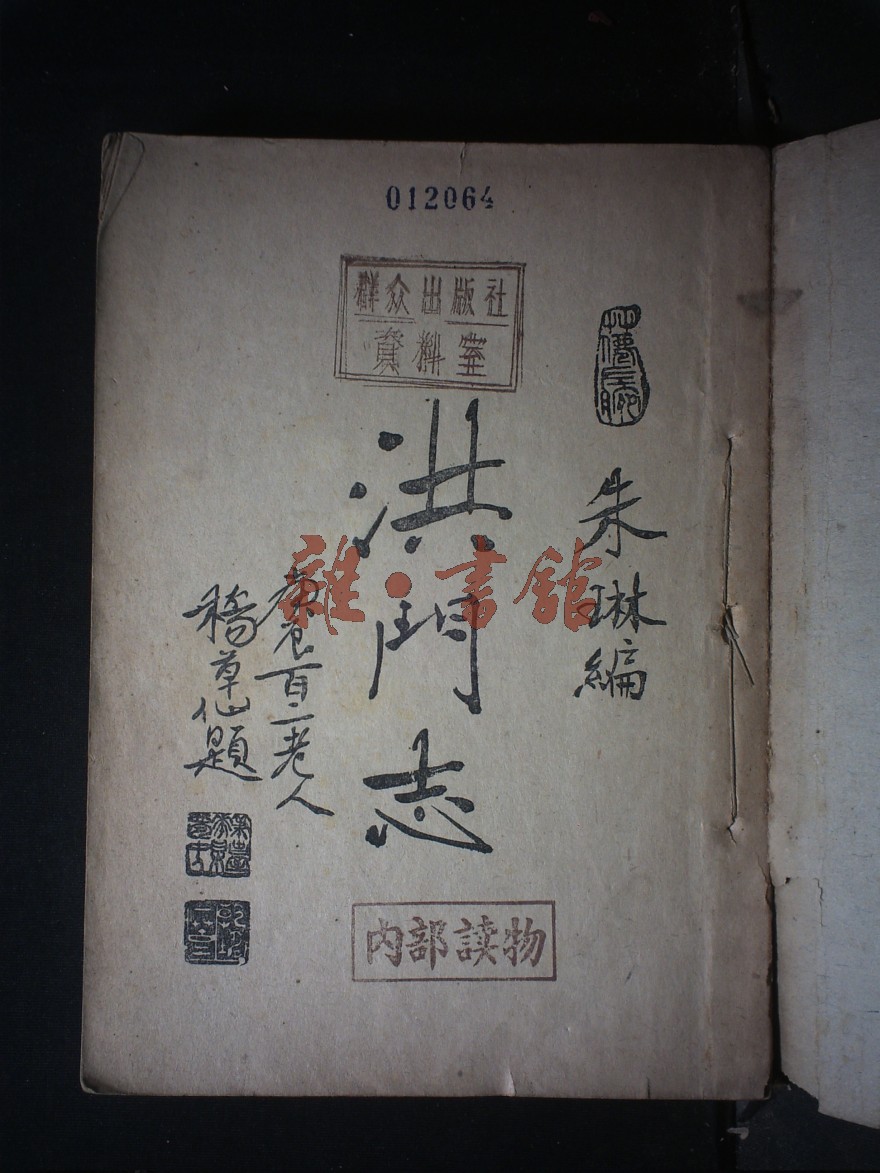 012064
群众出版社
資料室
朱琳編
洪門志
百二老人
稿草仙題
内部读物
雜·書館